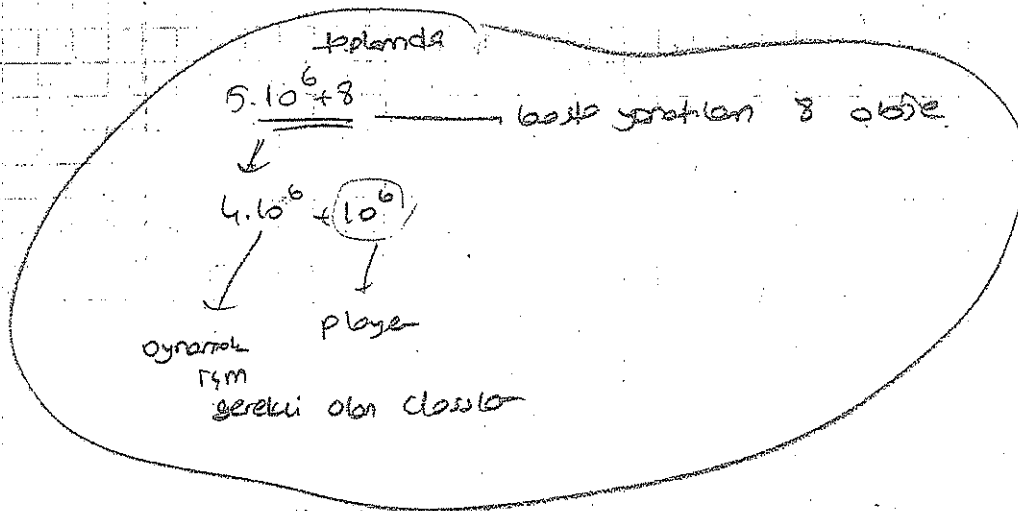 toplamda
5.10^6+8 —— başta yaratılan 8 obje
4.10^6 + 10^6
player
oynamak
için
gerekli olan classlar